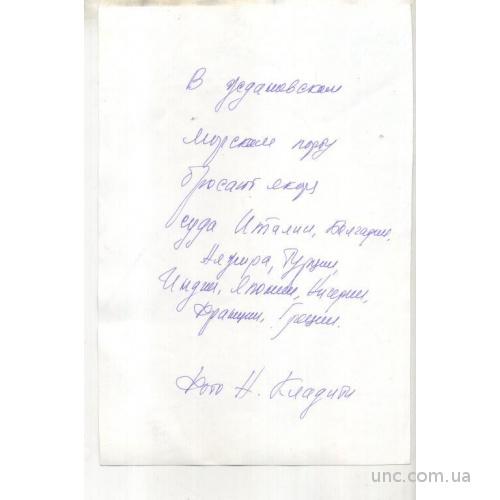 В ждановском
морском порту
бросают якоря
суда Италии, Болгарии,
Алжира, Турции,
Индии, Японии, Нигерии,
Франции, Греции.
Фото Н. Кладити
unc.com.ua